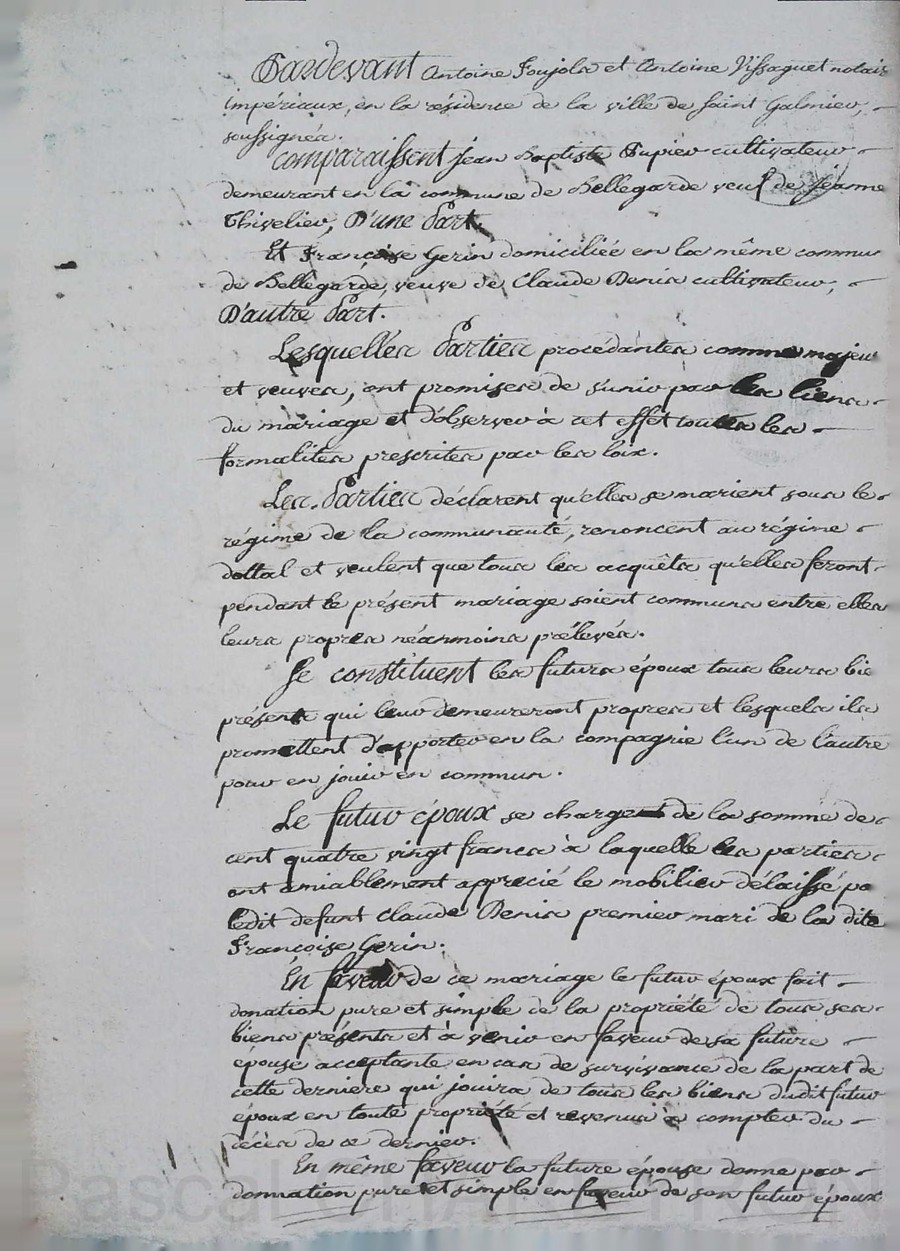 Pardevant Antoine Poujola et Antoine Vissaguet notair
impériaux, en la résidence de la ville de Saint Galmier,
soussignés.
Comparaissent Jean Baptiste Pupier cultivateur
demeurant en la commune de Bellegarde veuf de Jeanne
Thivelier, D'une Part.
Et Françoise Gerin domiciliée en la même commun
de Bellegarde, veuve de Claude Denis cultivateur,
D'autre Part.
Lesquelles Parties procédantes comme majeu
et veuves, ont promises de s'unir par les liens
du mariage et d'observer à cet effet toutes les
formalites prescrites par les loix.
Les Parties déclarent qu'elles se marient sous le
régime de la communauté, renoncent au régime
dottal et veulent que tous les acquêts qu'elles feront
pendant le présent mariage soient communs entre elles
leurs propres néanmoins prélevés.
Se constituent les futurs époux tous leurs bie
présents qui leur demeureront propres et lesquels ils
promettent d'apporter en la compagnie l'un de l'autre
pour en jouir en commun.
Le futur époux se charge de la somme de
cent quatre vingt francs à laquelle les parties
ont amiablement apprecié le mobilier délaissé pa
ledit defunt Claude Denis premier mari de la dite
Françoise Gerin.
En faveur de ce mariage le futur époux fait
donation pure et simple de la propriété de tous ses
biens présents et à venir en faveur de sa future
épouse acceptante en cas de survivance de la part de
cette derniere qui jouira de tous les biens dudit futur
époux en toute propriété et revenus à compter du
décès de ce dernier.
En même faveur la future épouse donne par
donnation pure et simple en faveur de son futur époux
Pascal CHAREYRON